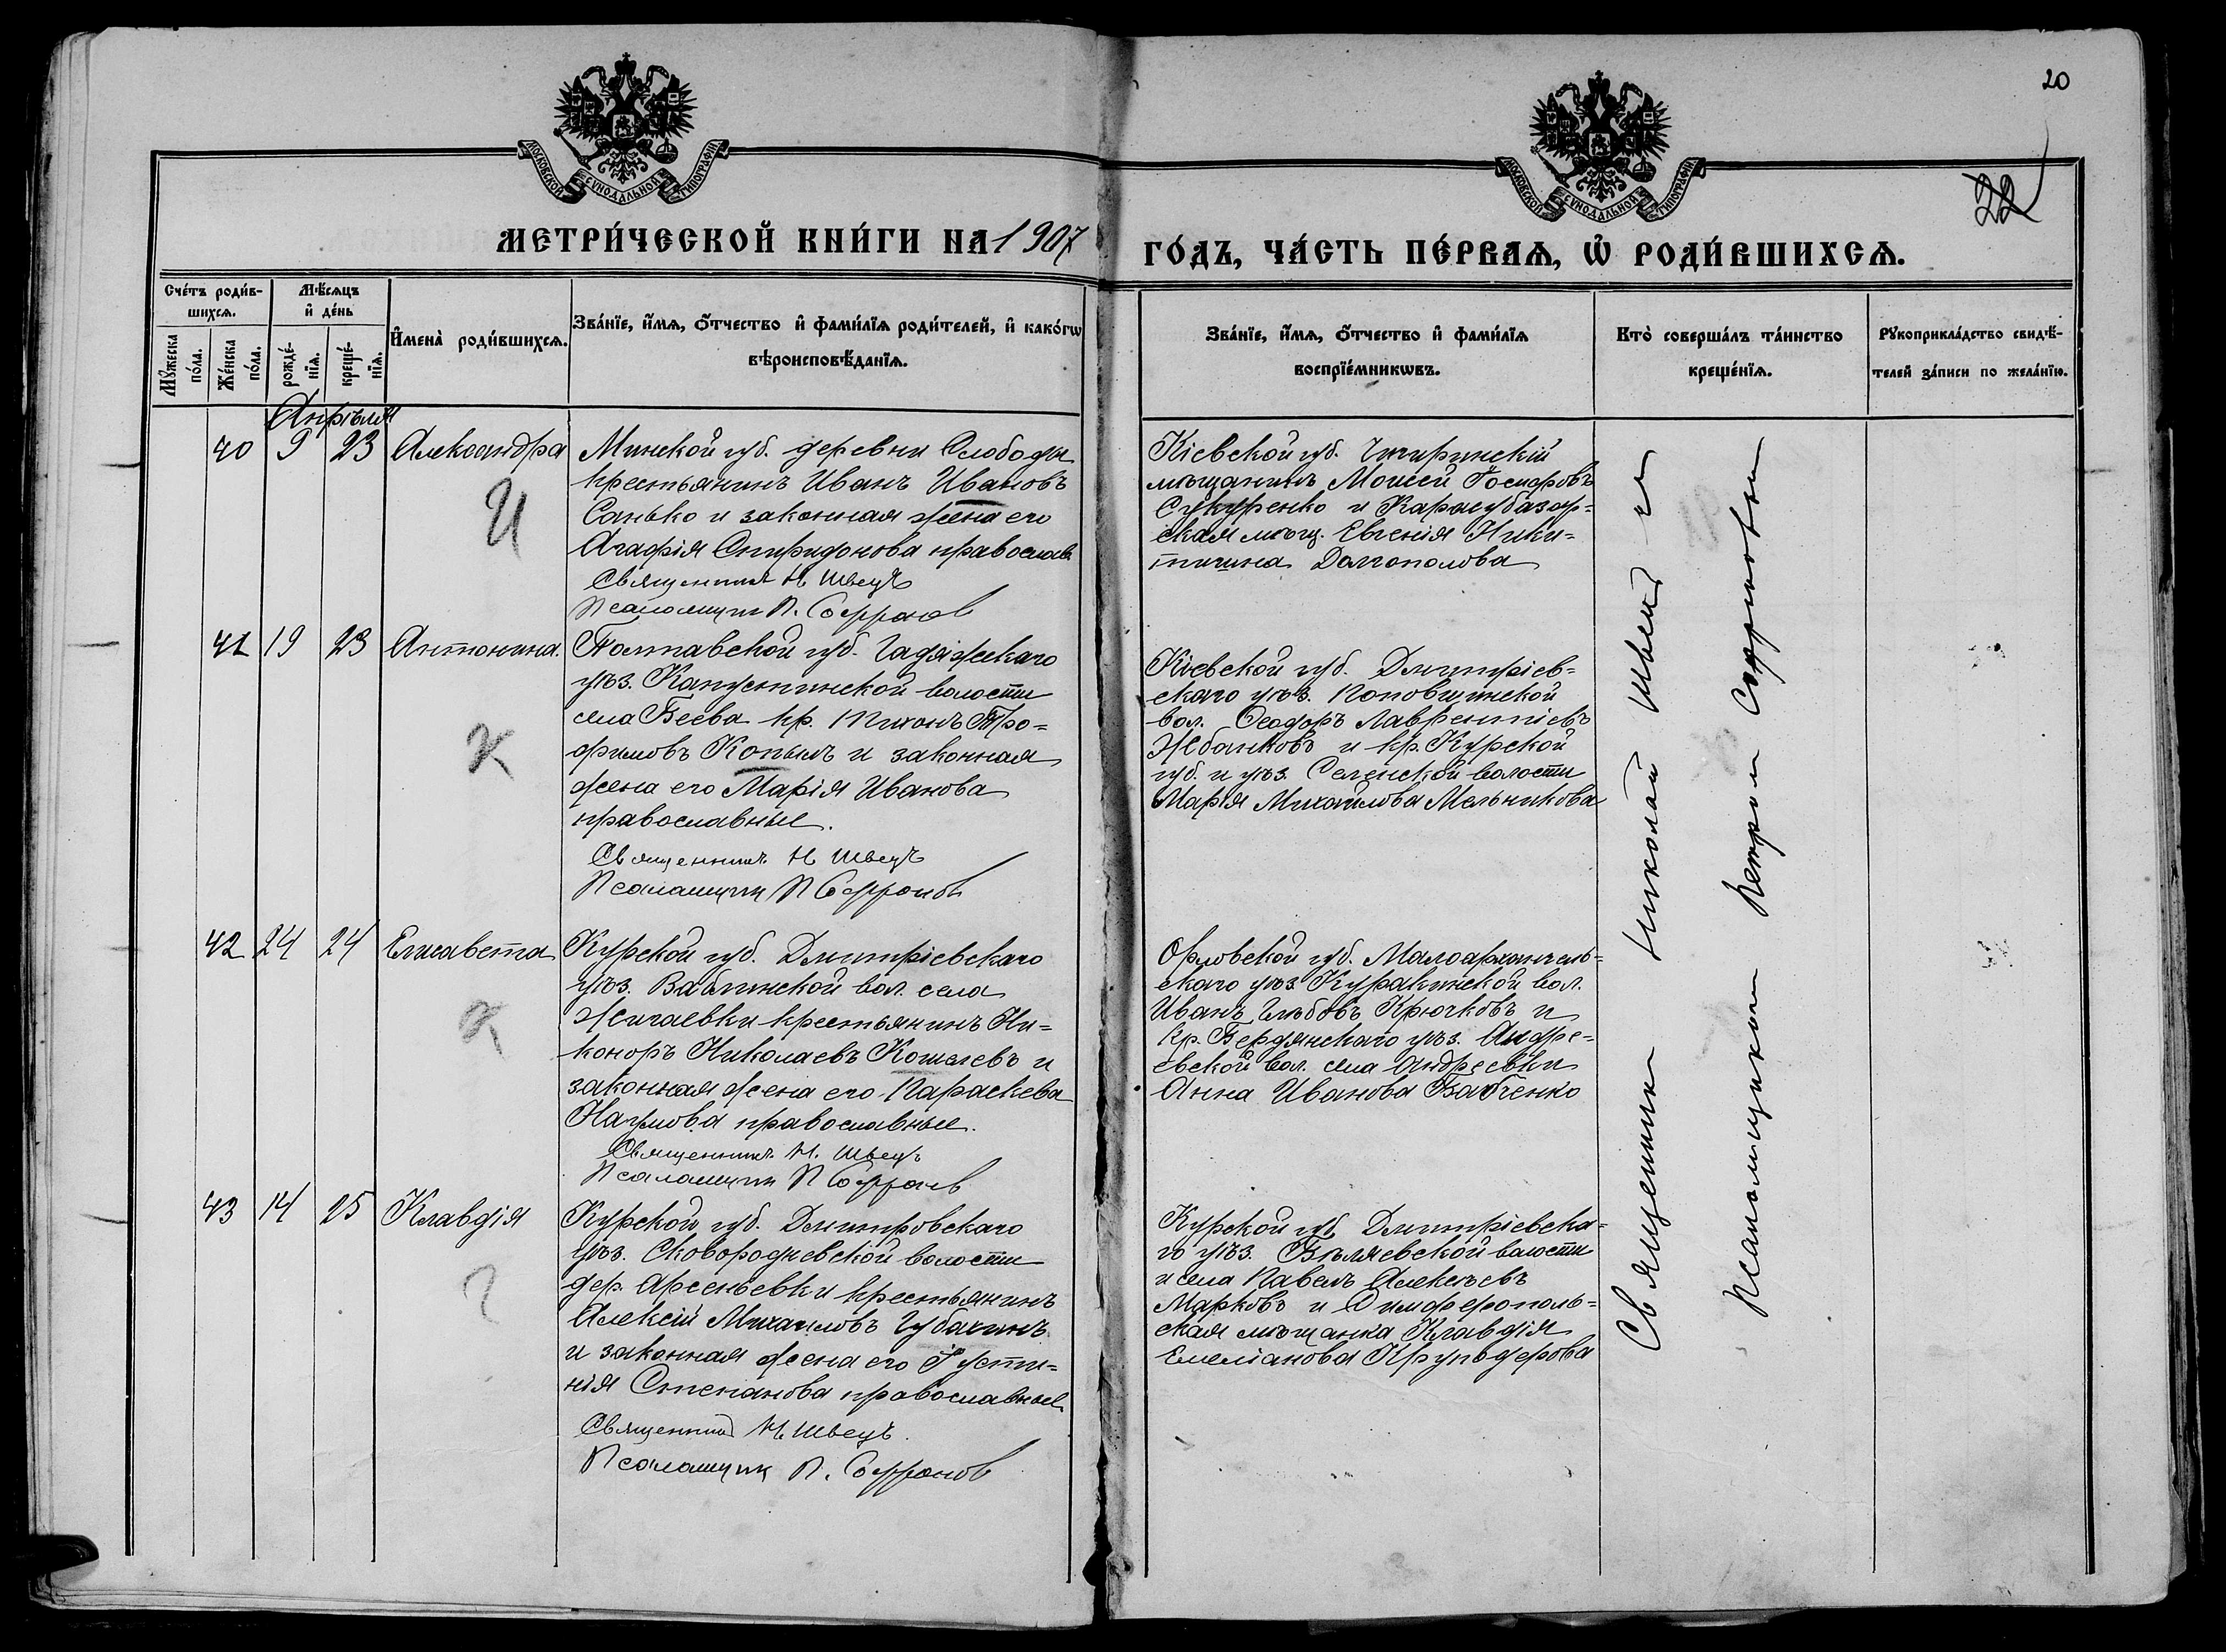 20
22
МОСКОВСКОЙ СѴНОДАЛЬНОЙ ТИПОГРАФІИ
МОСКОВСКОЙ СѴНОДАЛЬНОЙ ТИПОГРАФІИ
МЕТРИ́ЧЕСКОЙ КНИ́ГИ НА 1907
ГО́ДЪ, ЧА́СТЬ ПЕ́РВАѦ, Ѡ҆ РОДИ́ВШИХСѦ.
Сче́тъ роди́в-
шихсѧ.
Мꙋ́жеска по́ла.
Же́нска по́ла.
Мѣ́сѧцъ
и҆ де́нь
рожде́-
нїѧ.
креще́-
нїѧ.
И҆мена̀ роди́вшихсѧ.
Зва́нїе, и҆́мѧ, ѻ҆́тчество и҆ фами́лїѧ роди́телей, и҆ како́гѡ
вѣроисповѣ́данїѧ.
Зва́нїе, и҆́мѧ, ѻ҆́тчество и҆ фами́лїѧ
воспрїе́мникѡвъ.
Кто̀ соверша́лъ та́инство
креще́нїѧ.
Рꙋкоприкла́дство свидѣ́-
телей за́писи по жела́нїю.
Апрѣля
40 9 23 Александра
Минской губ. деревни Слободы
крестьянинъ Иванъ Ивановъ
Санько и законная жена его
Агафія Спиридонова православ.
Священникъ Н Швецъ
Псаломщик П. Софронов
И
Кіевской губ. Чигиринскій
мѣщанинъ Моисей
и Карасубазар-
ская мѣщ. Евгенія Ники-
тична Долгополова
41 19 23 Антонина.
Полтавской губ. Гадяжскаго
уѣз. Капустинской волости
села Беева кр. Тихонъ Тро-
фимовъ Копылъ и законная
жена его Марія Иванова
православные.
Священникъ Н Швецъ
Псаломщик П Софронов
К
Кіевской губ. Дмитріев-
скаго уѣз. Поповшинской
вол. Феодоръ Лаврентіевъ
Жбанковъ и кр. Курской
губ. и уѣз. волости
Марія Михайлова Мельникова
42 24 24 Елисавета
Курской губ. Дмитріевскаго
уѣз. вол. села
Жигаевки крестьянинъ Ни-
коноръ Николаевъ Кошелевъ и
законная жена его Параскева
Наумова православные.
Священникъ Н. Швецъ
Псаломщик П Софронов
К
Орловской губ. Малоархангель-
скаго уѣз. Куракинской вол.
Иванъ Глѣбовъ Крючковъ и
кр. Бердянскаго уѣз. Андре-
евской вол. села Андреевки
Анна Иванова Бабченко
43 14 25 Клавдія
Курской губ. Дмитровскаго
уѣз. волости
дер. Арсеньевки крестьянинъ
Алексій Михаиловъ Губакинъ
и законная жена его Усти-
нія Степанова православные.
Священник Н. Швецъ.
Псаломщик П. Софронов
Курской губ. Дмитріевска-
го уѣз. Бѣляевской волости
и села Павелъ Алексѣевъ
Марковъ и Симферополь-
ская мѣщанка Клавдія
Емеліанова
Священник Николай Швец и
Псаломщиком Петром Софроновым